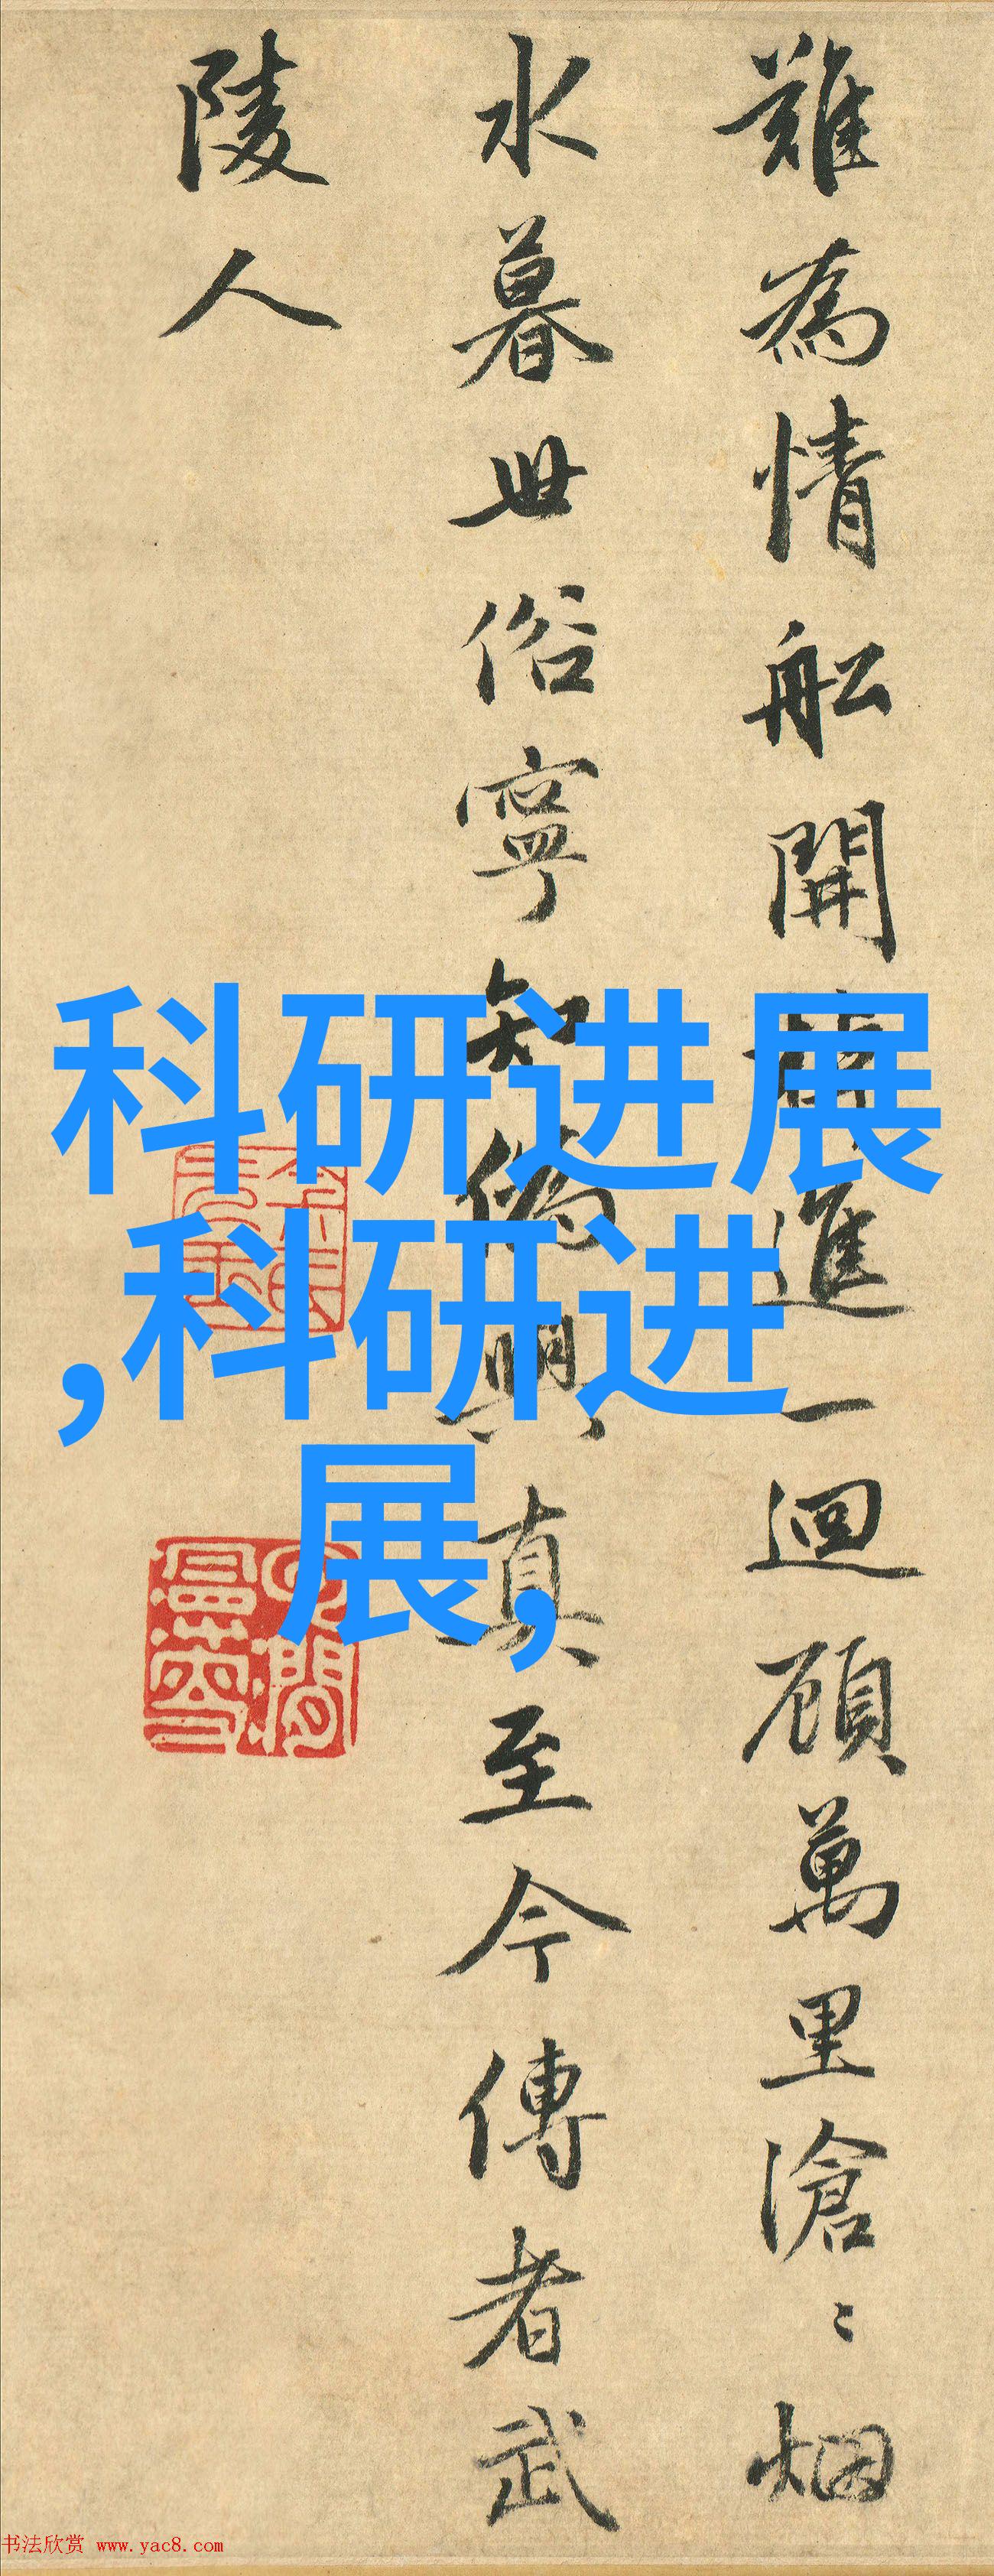 難為情舩開棹進一迴顧萬里滄〻烟
水暮世俗寧知偽與真至今傳者武
陵人
科研进展
,科研进
展,
书法欣赏 www.yac8.com